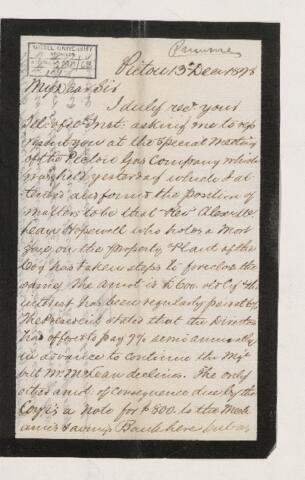 McGILL UNIVERSITY
ARCHIVES
Pamure
Pictou 13 Dec 1878
My Dear Sir
I duly recd your
Tel: of inst: asking me to rep
resent you at the Special Meeting
of the Pictou Gas Company which
was held yesterday which I at
tended also found the position of
matters to be that Rev Alex McL
ean Hopewell who holds a Mort
gage on the property & plant of the
Coy has taken steps to foreclose the
same The amot is $600 only & the
interest has been regularly paid by
The President stated that the Directors
had offered to pay 7% semi annually
in advance to continue the Mtge
but Mr McLean declines. The only
other amot: of consequence due by the
Coy is a note for $800. to the Mech
anics Savings Bank here